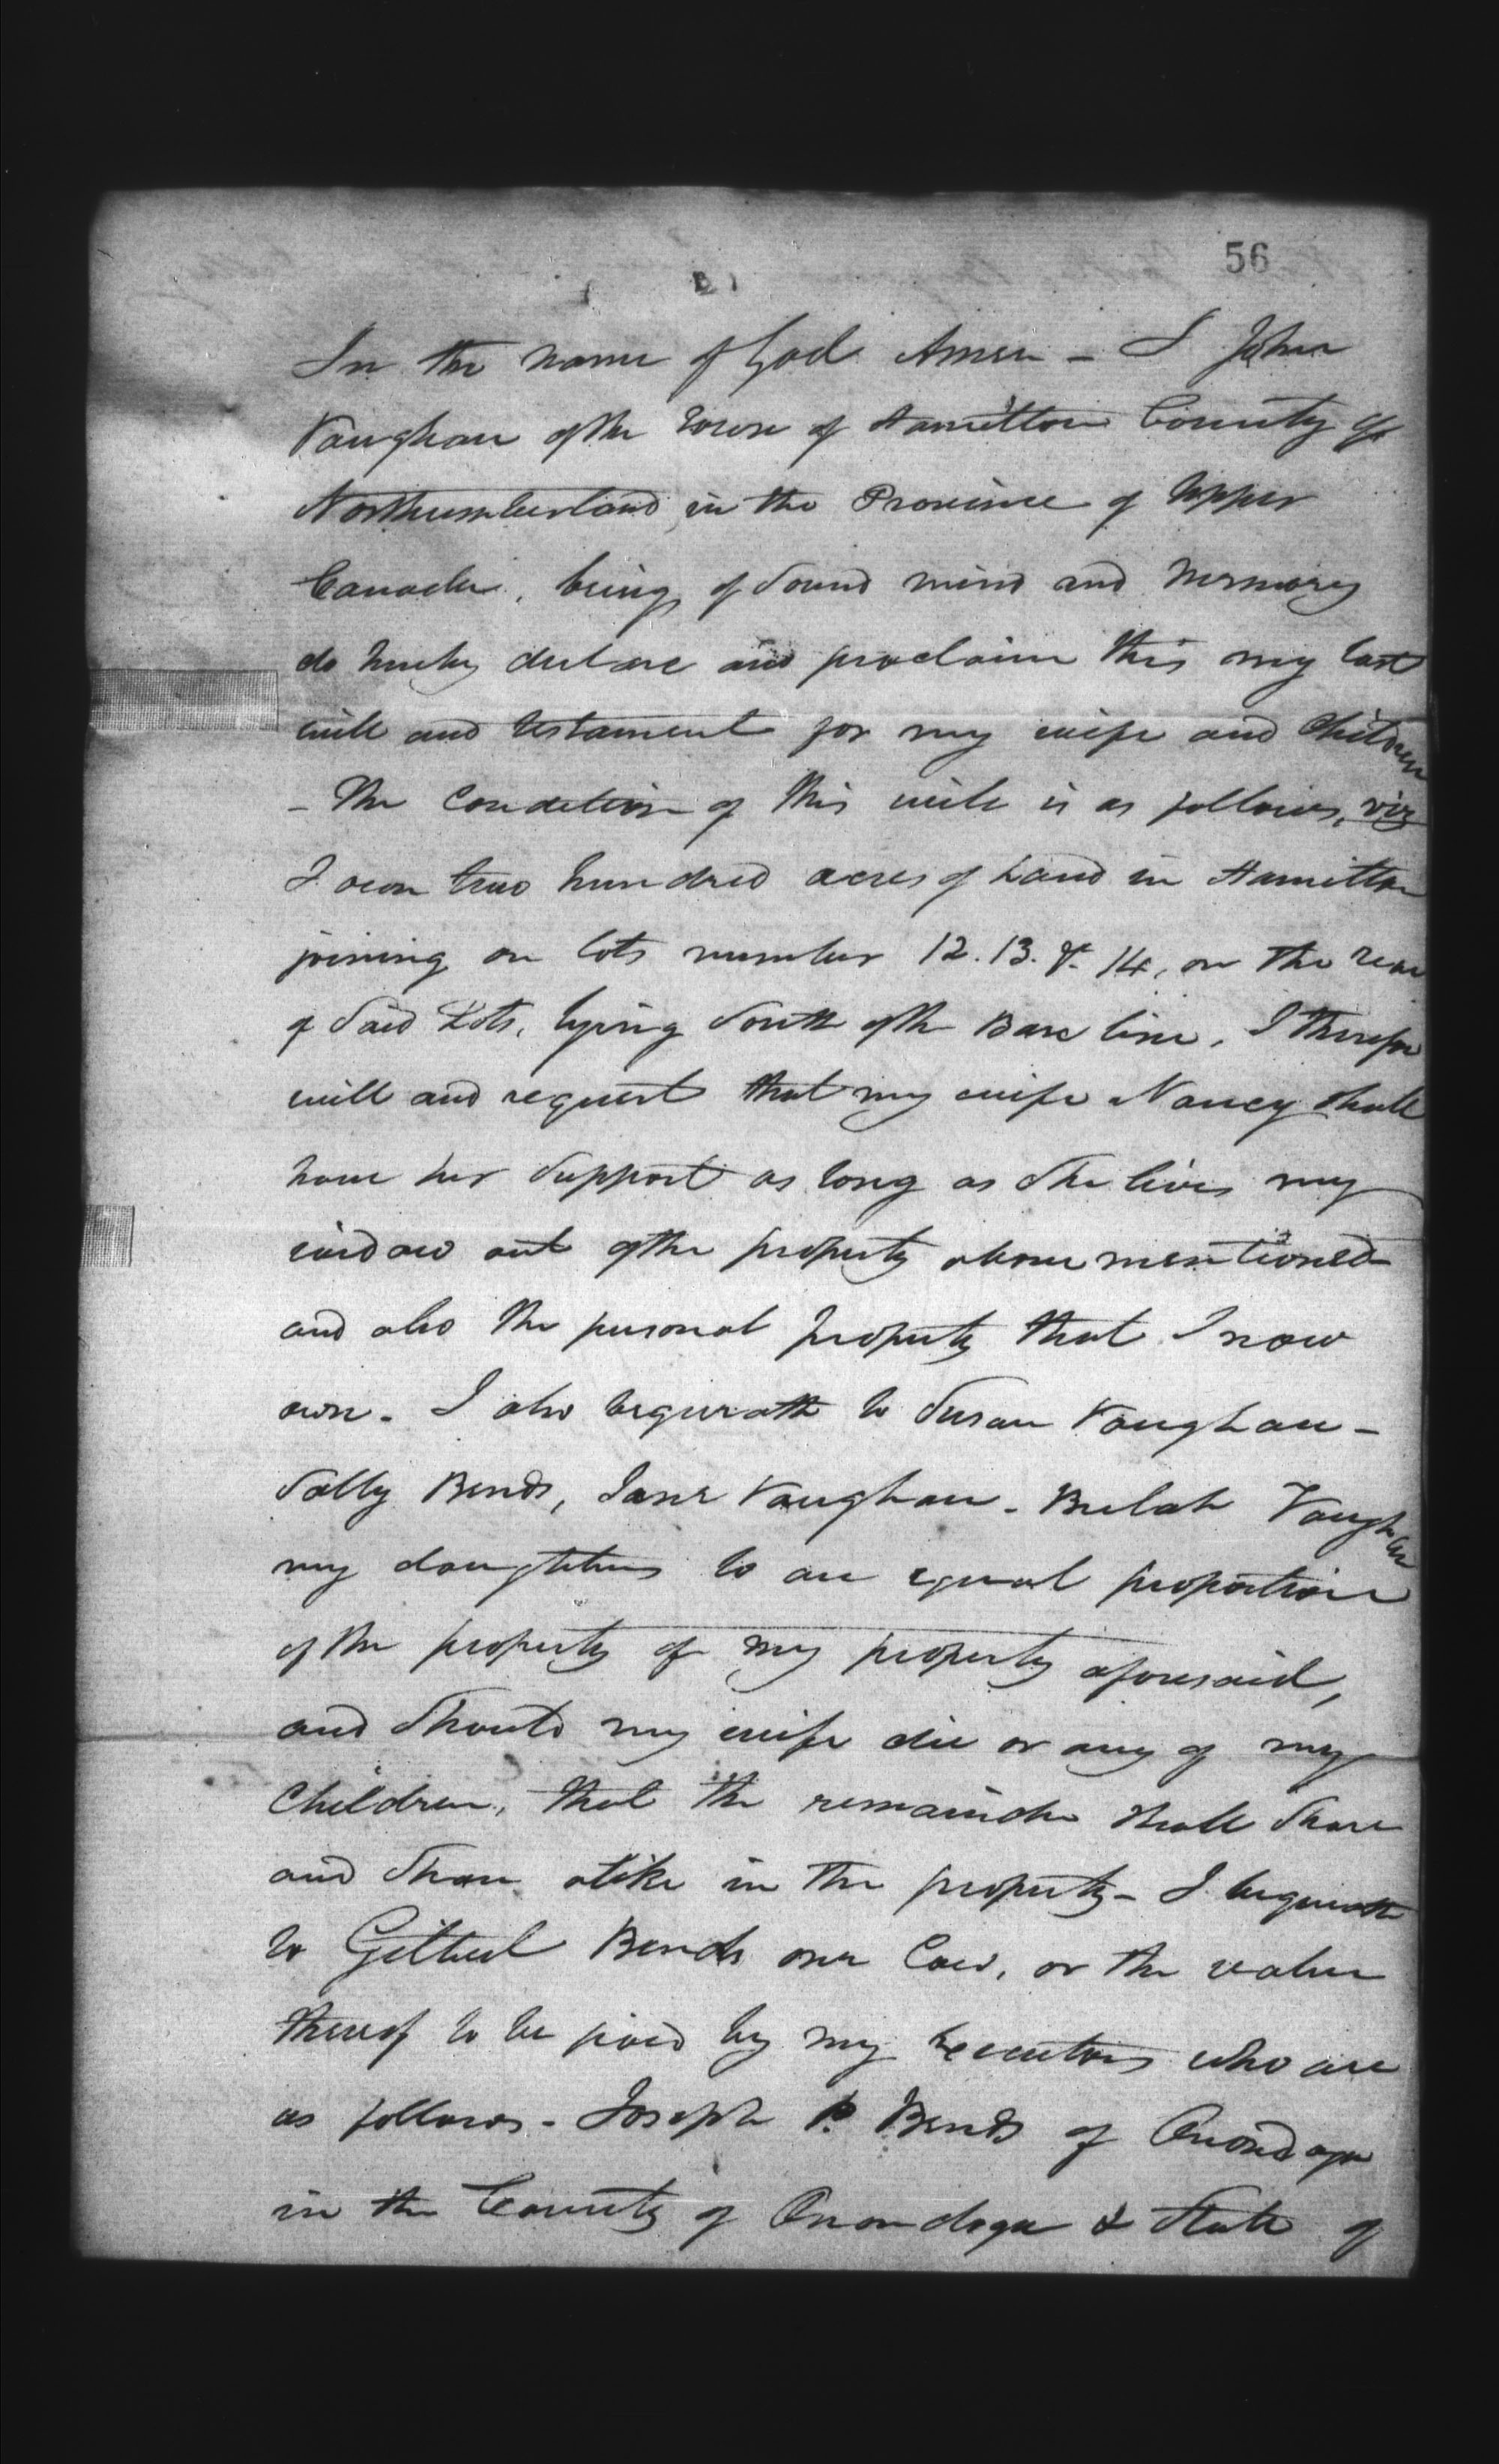 56
In the name of God Amen - I John
Vaughan of the Town of Hamilton County of
Northumberland, in the Province of Upper
Canada, being of Sound mind and Memory
do hereby declare and proclaim this my last
will and testament for my wife and Children
- The Condition of this will is as follows, viz
I own two hundred acres of Land in Hamilton
joining on lots number 12. 13. & 14, on the rear
of Said Lots, lying South of the Base line, I therefore
will and request that my wife Nancy Shall
have her Support as long as She lives my
widow out of the property above mentioned
and also the personal property that I now
own - I also bequeath to Susan Vaughan -
Sally Bends, Jane Vaughan - Bulah Vaughan
my daughters to an equal proportion
of the property of my property aforesaid,
and Should my wife die or any of my
Children, that the remainder Shall Share
and Share alike in the property - I bequeath
to Gilbert Bends one Cow, or the value
thereof to be paid by my Executors who are
as follows - Joseph P. Bends of Onondaga
in the County of Onondaga & State of